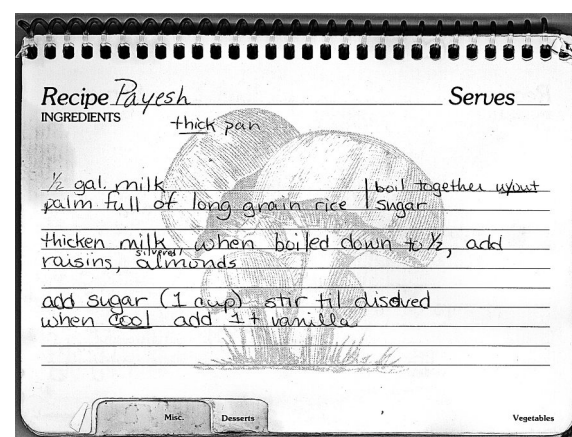 Recipe Payesh Serves
INGREDIENTS
thick pan
½ gal. milk | boil together w/out
palm full of long grain rice | sugar
thicken milk when boiled down to ½, add
raisins, slivered almonds
add sugar (1 cup) stir til disolved
when cool add 1 t vanilla
Misc. Desserts Vegetables